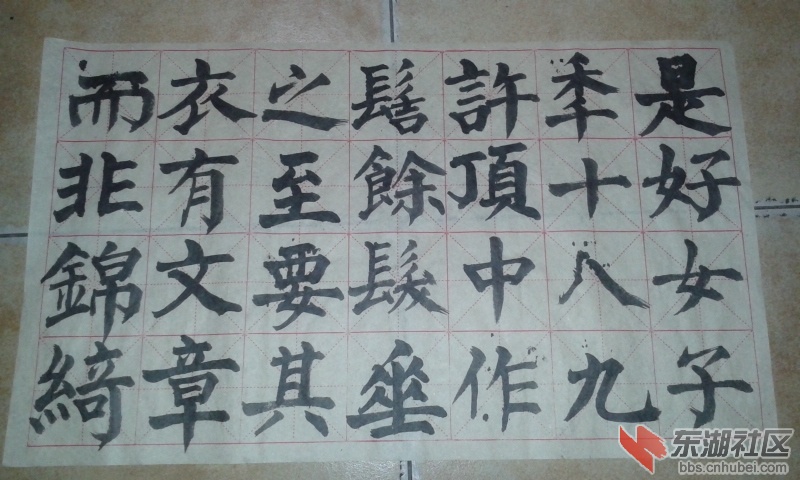 是好女子
秊十八九
許頂中作
髻餘髮垂
之至要其
衣有文章
而非錦綺
东湖社区
bbs.cnhubei.com